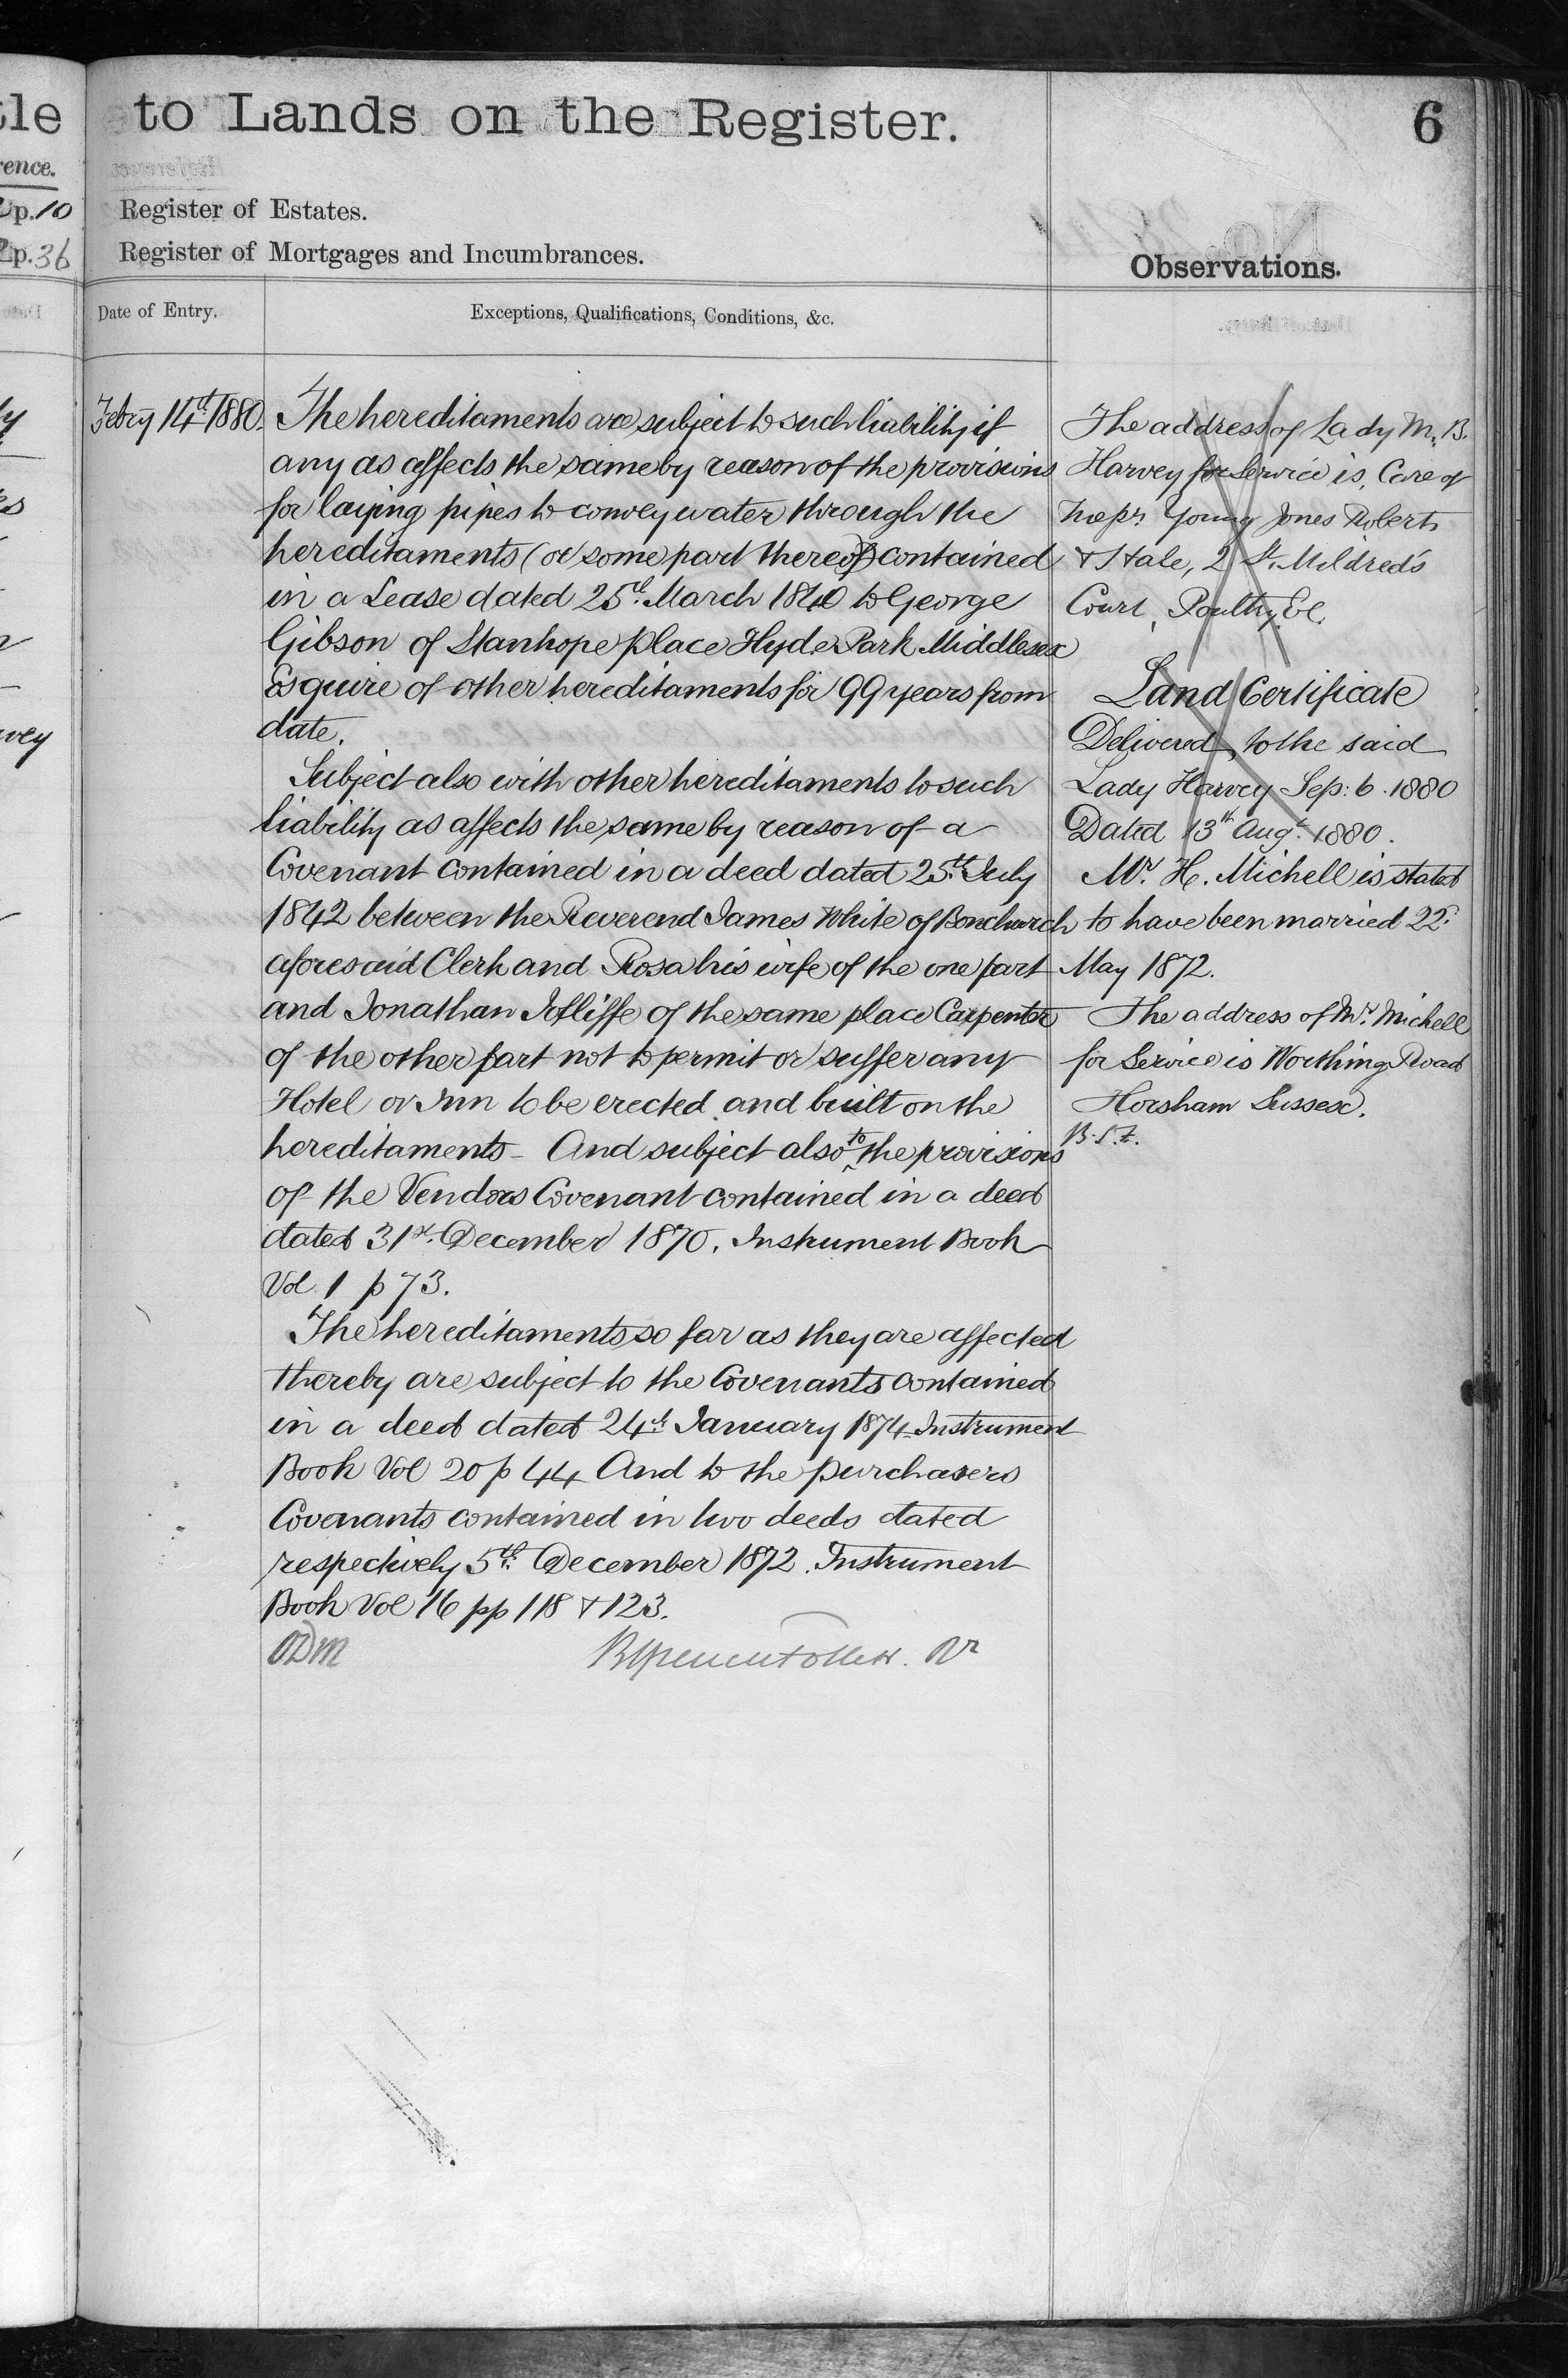 to Lands on the Register.
6
Register of Estates.
Register of Mortgages and Incumbrances.
Observations.
Date of Entry.
Exceptions, Qualifications, Conditions, &c.
tle
rence.
p. 10
p. 36
vey
Febry 14th 1880.
The hereditaments are subject to such liability if
any as affects the same by reason of the provisions
for laying pipes to convey water through the
hereditaments (or some part thereof) contained
in a Lease dated 25th March 1840 to George
Gibson of Stanhope place Hyde Park Middlesex
Esquire of other hereditaments for 99 years from
date.
Subject also with other hereditaments to such
liability as affects the same by reason of a
Covenant contained in a deed dated 25th July
1842 between the Reverend James White of Bonchurch
aforesaid Clerk and Rosa his wife of the one part
and Jonathan Jolliffe of the same place Carpenter
of the other part not to permit or suffer any
Hotel or Inn to be erected and built on the
hereditaments – And subject also to the provisions
of the Vendors Covenant contained in a deed
dated 31st December 1870. Instrument Book
Vol 1 p 73.
The hereditaments so far as they are affected
thereby are subject to the Covenants contained
in a deed dated 24th January 1874 Instrument
Book Vol 20 p 44 And to the purchasers
Covenants contained in two deeds dated
respectively 5th December 1872. Instrument
Book Vol 16 pp 118 & 123.
The address of Lady M. B.
Harvey for Service is, Care of
Young Jones Roberts
& Hale, 2 St. Mildred's
Court, Poultry E C.
Land Certificate
Delivered, to the said
Lady Harvey Sep: 6. 1880
Dated 13th Augt. 1880.
Mr. H. Michell is stated
to have been married 22d
May 1872.
The address of Mr. Michell
for Service is Worthing Road
Horsham Sussex.